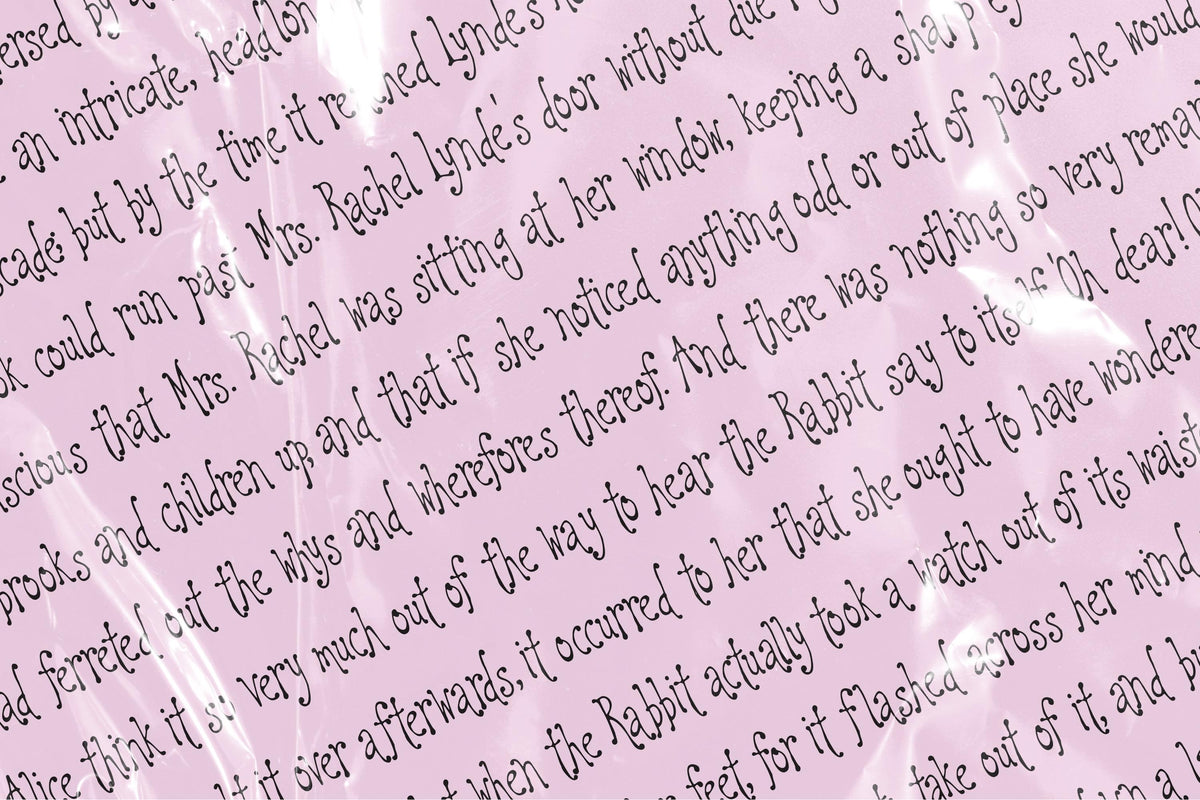 ersed by
an intricate, headlon
cade; but by the time it reached Lynde's
could run past Mrs. Rachel Lynde's door without due
scious that Mrs. Rachel was sitting at her window, keeping a sharp
brooks and children up, and that if she noticed anything odd or out of place she would
ad ferreted out the whys and wherefores thereof. And there was nothing so very remar
Alice think it so very much out of the way to hear the Rabbit say to itself 'Oh dear!
it over afterwards, it occurred to her that she ought to have wondere
when the Rabbit actually took a watch out of its waist
feet, for it flashed across her mind
take out of it, and